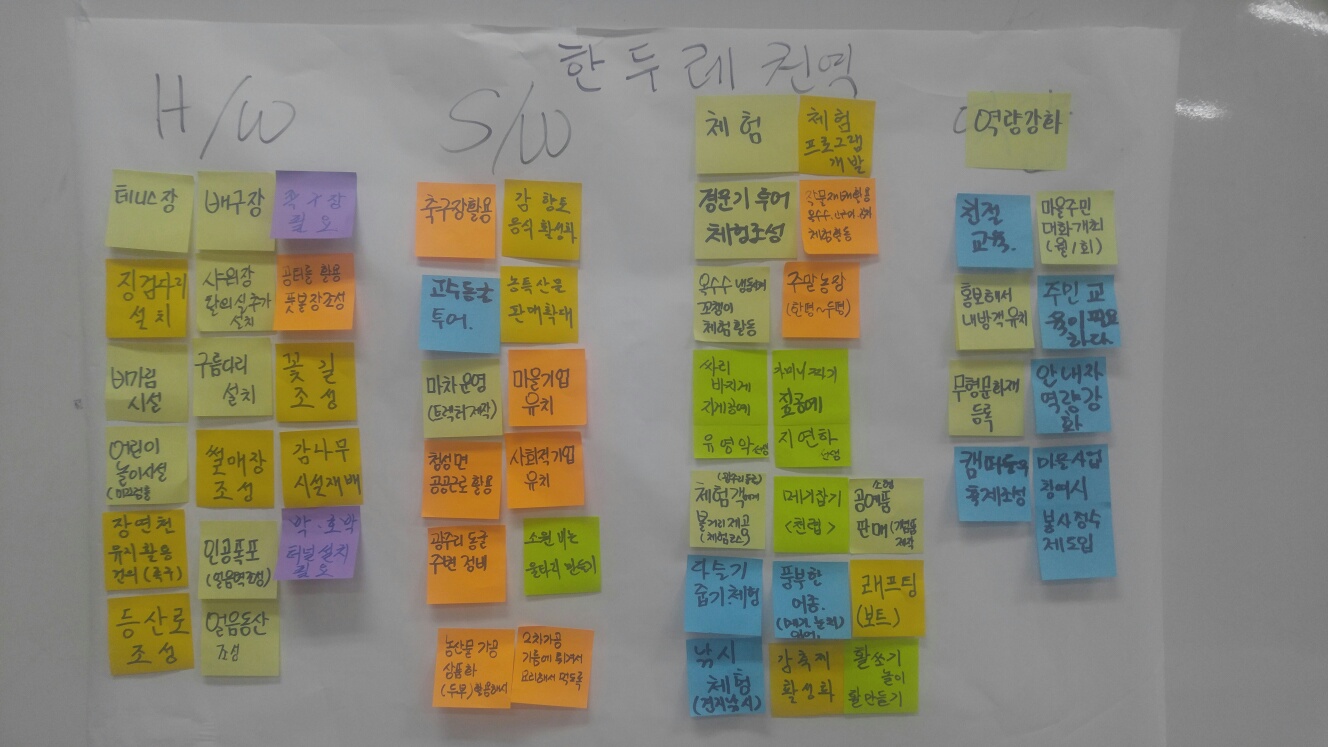 한두레 권역
H/W
테니스장
배구장
족구장
필요
징검다리
설치
샤워장
탈의실 추가
설치
공터를 활용
풋볼장조성
비가림
시설
구름다리
설치
꽃길
조성
어린이
놀이시설
썰매장
조성
감나무
시설재배
장연천
유지활용
건의(축구)
인공폭포
박·호박
터널설치
필요
등산로
조성
얼음동산
조성
S/W
축구장활용
감 황토
음식 활성화
고수동굴
투어.
농특산물
판매확대
마차운영
(트랙터 제작)
마을기업
유치
청성면
공공근로 활용
사회적기업
유치
광주리 동굴
주변 정비
소원 비는
울타리 만들기
농산물 가공
상품화
(두부)활용해서
2차가공
기름에 튀겨서
요리해서 먹도록
체험
체험
프로그램
개발
경운기 투어
체험조성
체험활동
옥수수
체험활동
주말농장
(한평~두평)
싸리
바지게
지게공예
짚공예
유영악
지연하
체험객에게
볼거리제공
(체험코스)
메기잡기
<천렵>
소형
공예품
판매
다슬기
줍기.체험
풍부한
어종.
래프팅
(보트)
낚시
체험
(견지낚시)
감축제
활성화
활쏘기
놀이
활만들기
역량강화
친절
교육.
마을주민
대화개최
(월1회)
홍보해서
내방객유치
주민 교
육이 필요
하다
무형문화재
등록
안내자
역량강
화
축제조성
마을사업
참여시
봉사점수
제도입